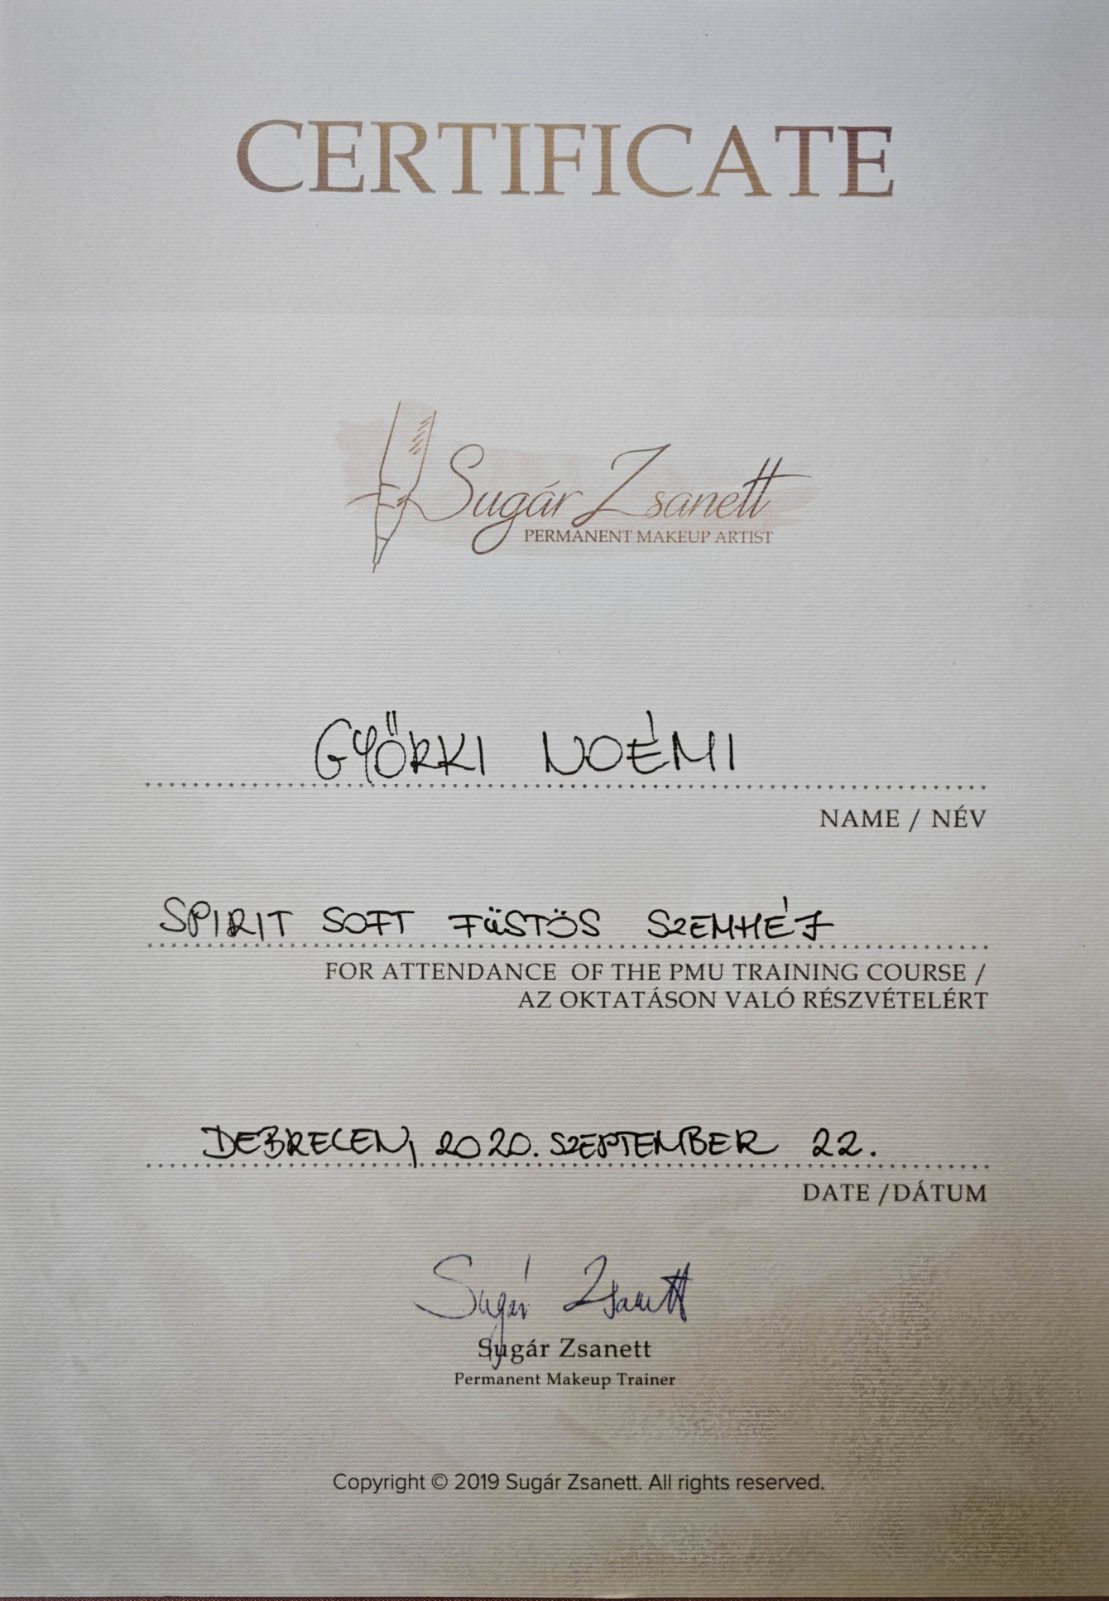 CERTIFICATE
Sugár Zsanett
PERMANENT MAKEUP ARTIST
GYŐRKI NOÉMI
NAME / NÉV
SPIRIT SOFT FÜSTÖS SZEMHÉJ
FOR ATTENDANCE OF THE PMU TRAINING COURSE /
AZ OKTATÁSON VALÓ RÉSZVÉTELÉRT
DEBRECEN, 2020. SZEPTEMBER 22.
DATE /DÁTUM
Sugár Zsanett
Sugár Zsanett
Permanent Makeup Trainer
Copyright © 2019 Sugár Zsanett. All rights reserved.